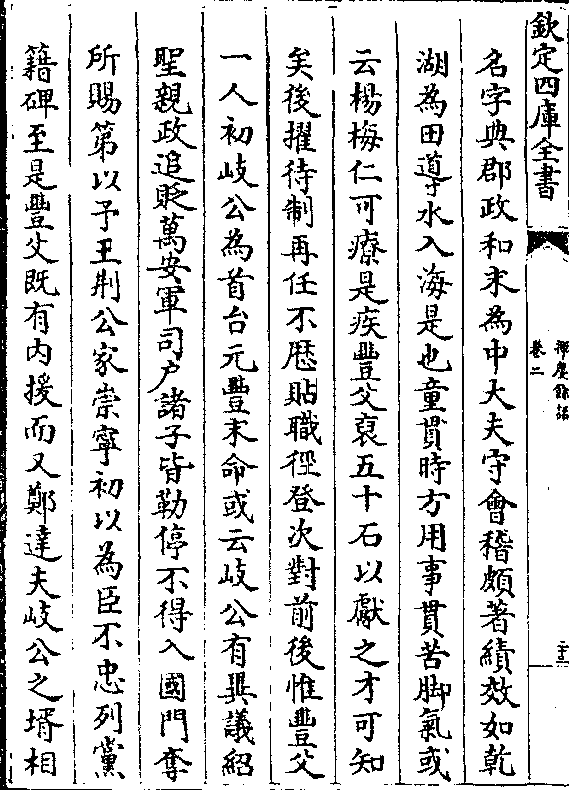 欽定四庫全書
揮麈餘話
卷二
名字典郡政和末為中大夫守會稽頗著績效如乾
湖為田導水入海是也童貫時方用事貫苦脚氣或
云楊梅仁可療是疾豐父裒五十石以獻之才可知
矣後擢待制再任不歴貼職徑登次對前後惟豐父
一人初岐公為首台元豐末命或云岐公有異議紹
聖親政追貶萬安軍司户諸子皆勒停不得入國門奪
所賜第以予王荆公家崇寧初以為臣不忠列黨
籍碑至是豐父既有内援而又鄭達夫岐公之壻相